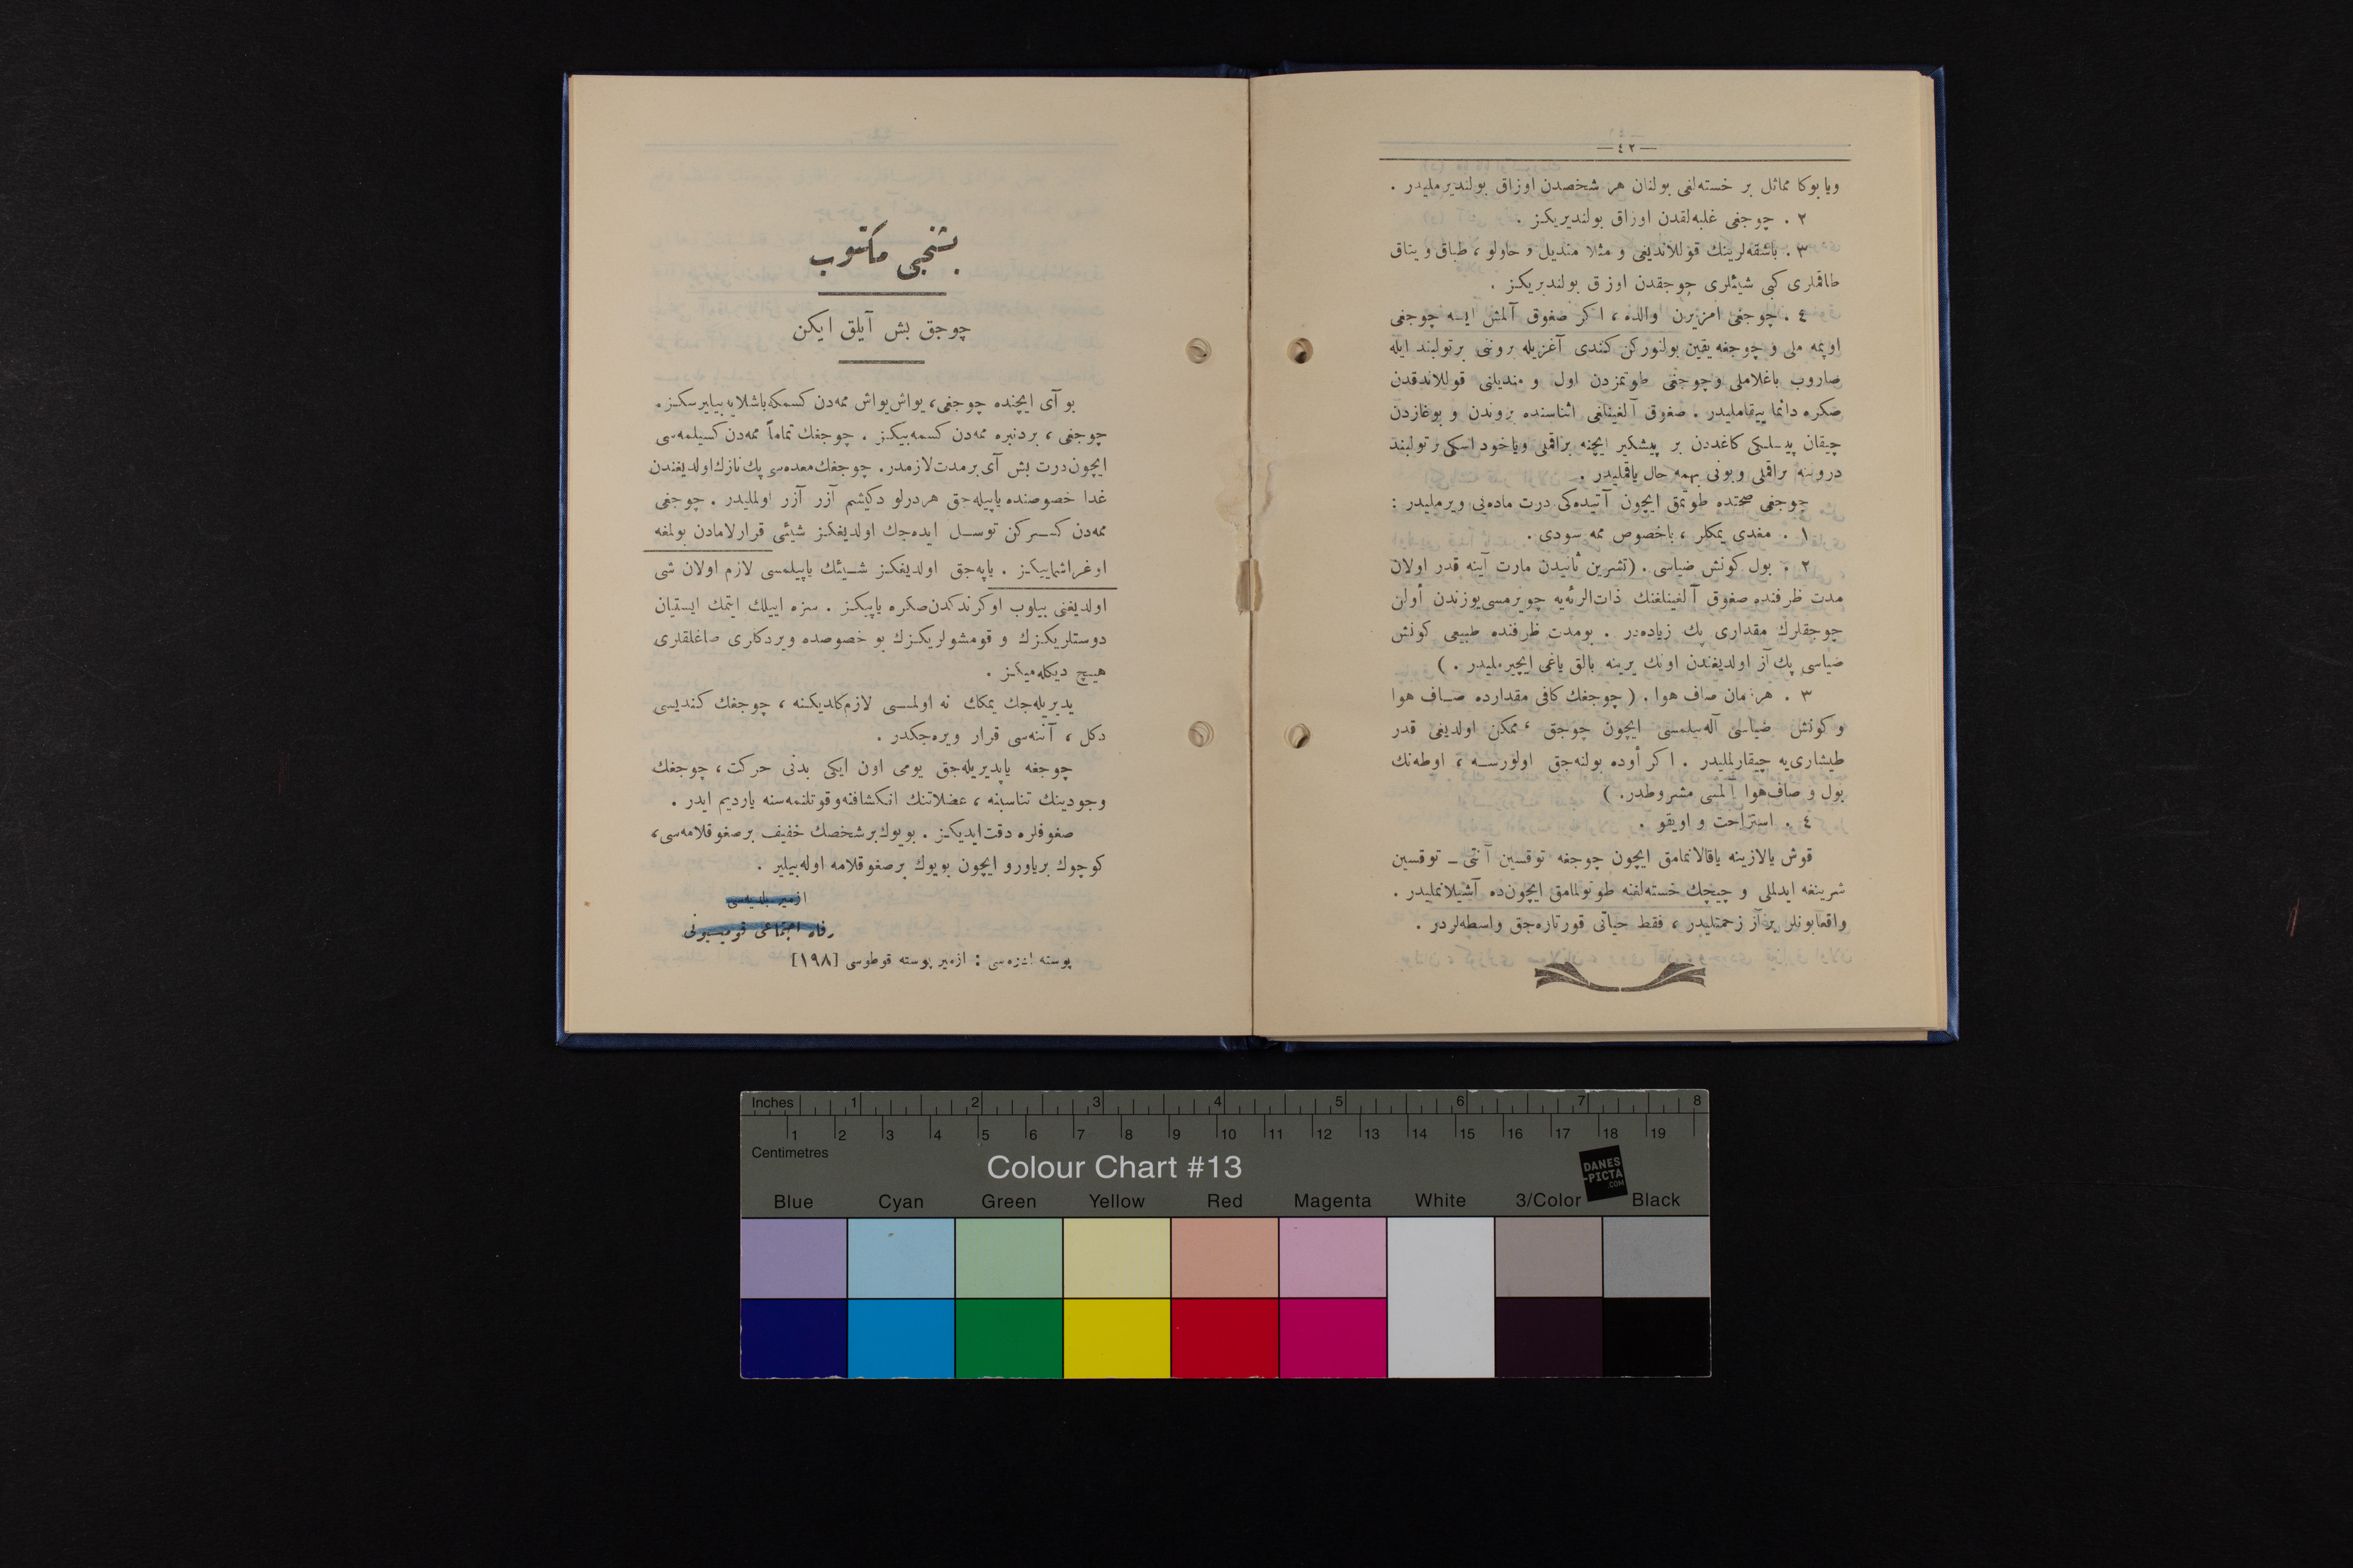 — ٤٢ —
ویا بوکا مماثل بر خسته‌لغی بولنان هر شخصدن اوزاق بولندیرملیدر .
٢ . چوجغی غلبه‌لقدن اوزاق بولندیریکز .
٣ . باشقه‌لرینك قوللاندیغی و مثلا مندیل و حاولو ، طباق و یتاق
طاقملری کبی شیئلری چوجقدن اوزاق بولندیریکز .
٤ . چوجغی امزیرن والده ، اکر صغوق آلمش ایسه چوجغی
اوپمه ملی و چوجغه یقین بولنورکن کندی آغزیله بروننی بر تولبند ایله
صاروب باغلاملی و چوجغی طوتمزدن اول و مندیلنی قوللاندقدن
صکره دائما ییقاملیدر . صغوق آلغینلغی اثناسنده بروندن و بوغازدن
چیقان پیسلکی کاغددن بر پیشکیر ایچنه براقملی ویاخود اسکی بر تولبند
دروننه براقملی و بونی بهمه حال یاقملیدر .
چوجغی صحتده طوتمق ایچون آتیده‌کی درت ماده‌یی ویرملیدر :
١ . مغدی یمکلر ، باخصوص ممه سودی .
٢ . بول کونش ضیاسی . (تشرین ثانیدن مارت آینه قدر اولان
مدت ظرفنده صغوق آلغینلغنك ذات‌الرئه‌یه چویرمسی یوزندن أولن
چوجقلرك مقداری پك زیاده‌در . بومدت ظرفنده طبیعی کونش
ضیاسی پك آز اولدیغندن اونك یرینه بالق یاغی ایچیرملیدر . )
٣ . هر زمان صاف هوا . ( چوجغك کافی مقدارده صاف هوا
و کونش ضیاسی آله‌بیلمسی ایچون چوجق ، ممکن اولدیغی قدر
طیشاری‌یه چیقارلملیدر . اکر أوده بولنه‌جق اولورسه ، اوطه‌نك
بول و صاف هوا آلمسی مشروطدر. )
٤ . استراحت و اویقو .
قوش پالازینه یاقالانمامق ایچون چوجغه توقسین آنتی - توقسین
شرینغه ایدلملی و چیچك خسته‌لغنه طوتولمامق ایچون‌ده آشیلانملیدر .
واقعا بونلر بر آز زحمتلیدر ، فقط حیاتی قورتاره‌جق واسطه‌لردر .
بشنجی مکتوب
چوجق بش آیلق ایکن
بو آی ایچنده چوجغی ، یواش یواش ممه‌دن کسمکه باشلایه بیلیرسکز .
چوجغی ، بردنبره ممه‌دن کسمه‌ییکز . چوجغك تماماً ممه‌دن کسیلمه‌سی
ایچون درت بش آی بر مدت لازمدر. چوجغك معده‌سی پك نازك اولدیغندن
غدا خصوصنده یاپیله‌جق هر درلو دکیشم آزر آزر اولملیدر . چوجغی
ممه‌دن کسرکن توسل ایده‌جك اولدیغکز شیئی قرارلامادن بولمغه
اوغراشماییکز . یاپه‌جق اولدیغکز شیئك یاپیلمسی لازم اولان شی
اولدیغنی بیلوب اوکرندکدن صکره یاپیکز . سزه اییلك ایتمك ایستیان
دوستلریکزك و قومشولریکزك بو خصوصده ویردکلری صاغلقلری
هیچ دیکله‌میکز .
یدیریله‌جك یمکك نه اولمسی لازم‌کلدیکنه ، چوجغك کندیسی
دکل ، آننه‌سی قرار ویره‌جکدر .
چوجغه یاپدیریله‌جق یومی اون ایکی بدنی حرکت ، چوجغك
وجودینك تناسبنه ، عضلاتنك انکشافنه و قوتلنمه‌سنه یاردیم ایدر .
صغوقلره دقت ایدیکز . بویوك بر شخصك خفیف بر صغوقلامه‌سی ،
کوچوك بر یاورو ایچون بویوك بر صغوقلامه اوله‌بیلیر .
ازمیر بلدیه‌سی
رفاه اجتماعی قومیسیونی
پوسته ادره‌سی : ازمیر پوسته قوطوسی [١٩٨]
Inches 1 2 3 4 5 6 7 8
1 2 3 4 5 6 7 8 9 10 11 12 13 14 15 16 17 18 19
Centimetres
Colour Chart #13
DANES
-PICTA
.COM
Blue Cyan Green Yellow Red Magenta White 3/Color Black